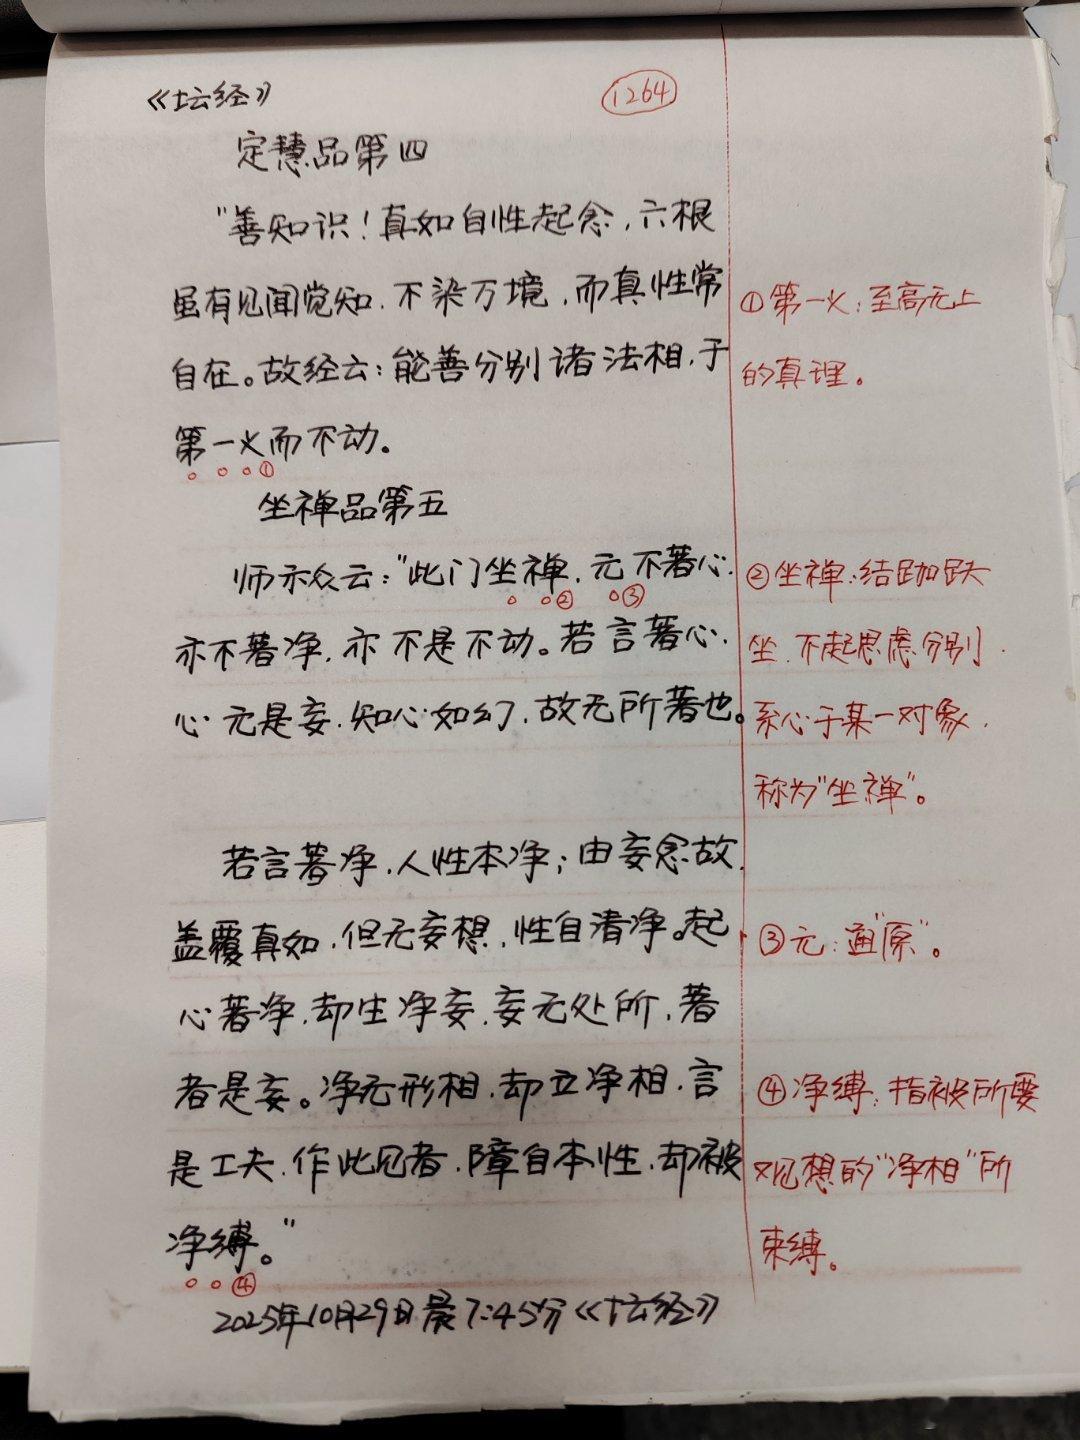 《坛经》
1264
定慧品第四
"善知识！真如自性起念，六根
虽有见闻觉知，不染万境，而真性常
自在。故经云：能善分别诸法相，于
第一义而不动。
①
坐禅品第五
师示众云："此门坐禅，元不著心，
② ③
亦不著净，亦不是不动。若言著心，
心元是妄，知心如幻，故无所著也。
若言著净，人性本净；由妄念故，
盖覆真如，但无妄想，性自清净。起
心著净，却生净妄，妄无处所，著
者是妄。净无形相，却立净相，言
是工夫，作此见者，障自本性，却被
净缚。"
④
2025年10月29日晨7:45分《坛经》
①第一义：至高无上
的真理。
②坐禅：结跏趺
坐，不起思虑分别，
系心于某一对象，
称为"坐禅"。
③元：通"原"。
④净缚：指被所要
观想的"净相"所
束缚。